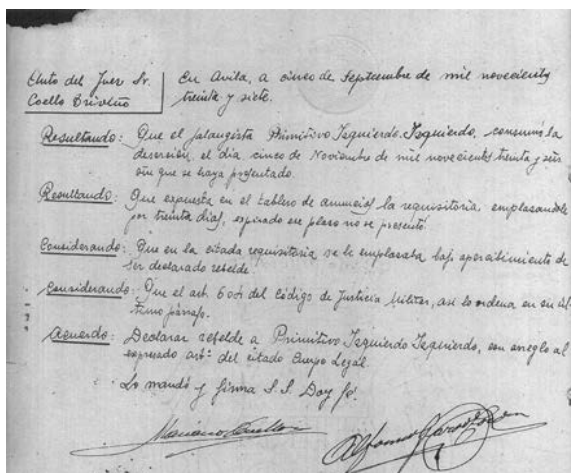 Auto del Juez Sr.
Coello Triviño
En Avila, a cinco de Septiembre de mil novecientos
treinta y siete.
Resultando: Que el falangista Primitivo Izquierdo Izquierdo, consumó la
deserción, el día cinco de Noviembre de mil novecientos treinta y seis
sin que se haya presentado.
Resultando: Que expuesta en el tablero de anuncios la requisitoria, emplazandole
por treinta días, expirado ese plazo no se presentó.
Considerando: Que en la citada requisitoria se le emplazaba bajo apercibimiento de
ser declarado rebelde.
Considerando: Que el art. del Código de Justicia Militar, así lo ordena en su úl-
timo párrafo.
Acuerdo: Declarar rebelde a Primitivo Izquierdo Izquierdo, con arreglo al
expresado artº. del citado Cuerpo Legal.
Lo mandó y firma S.S. Doy fé.
Mariano Coello
Alfonso